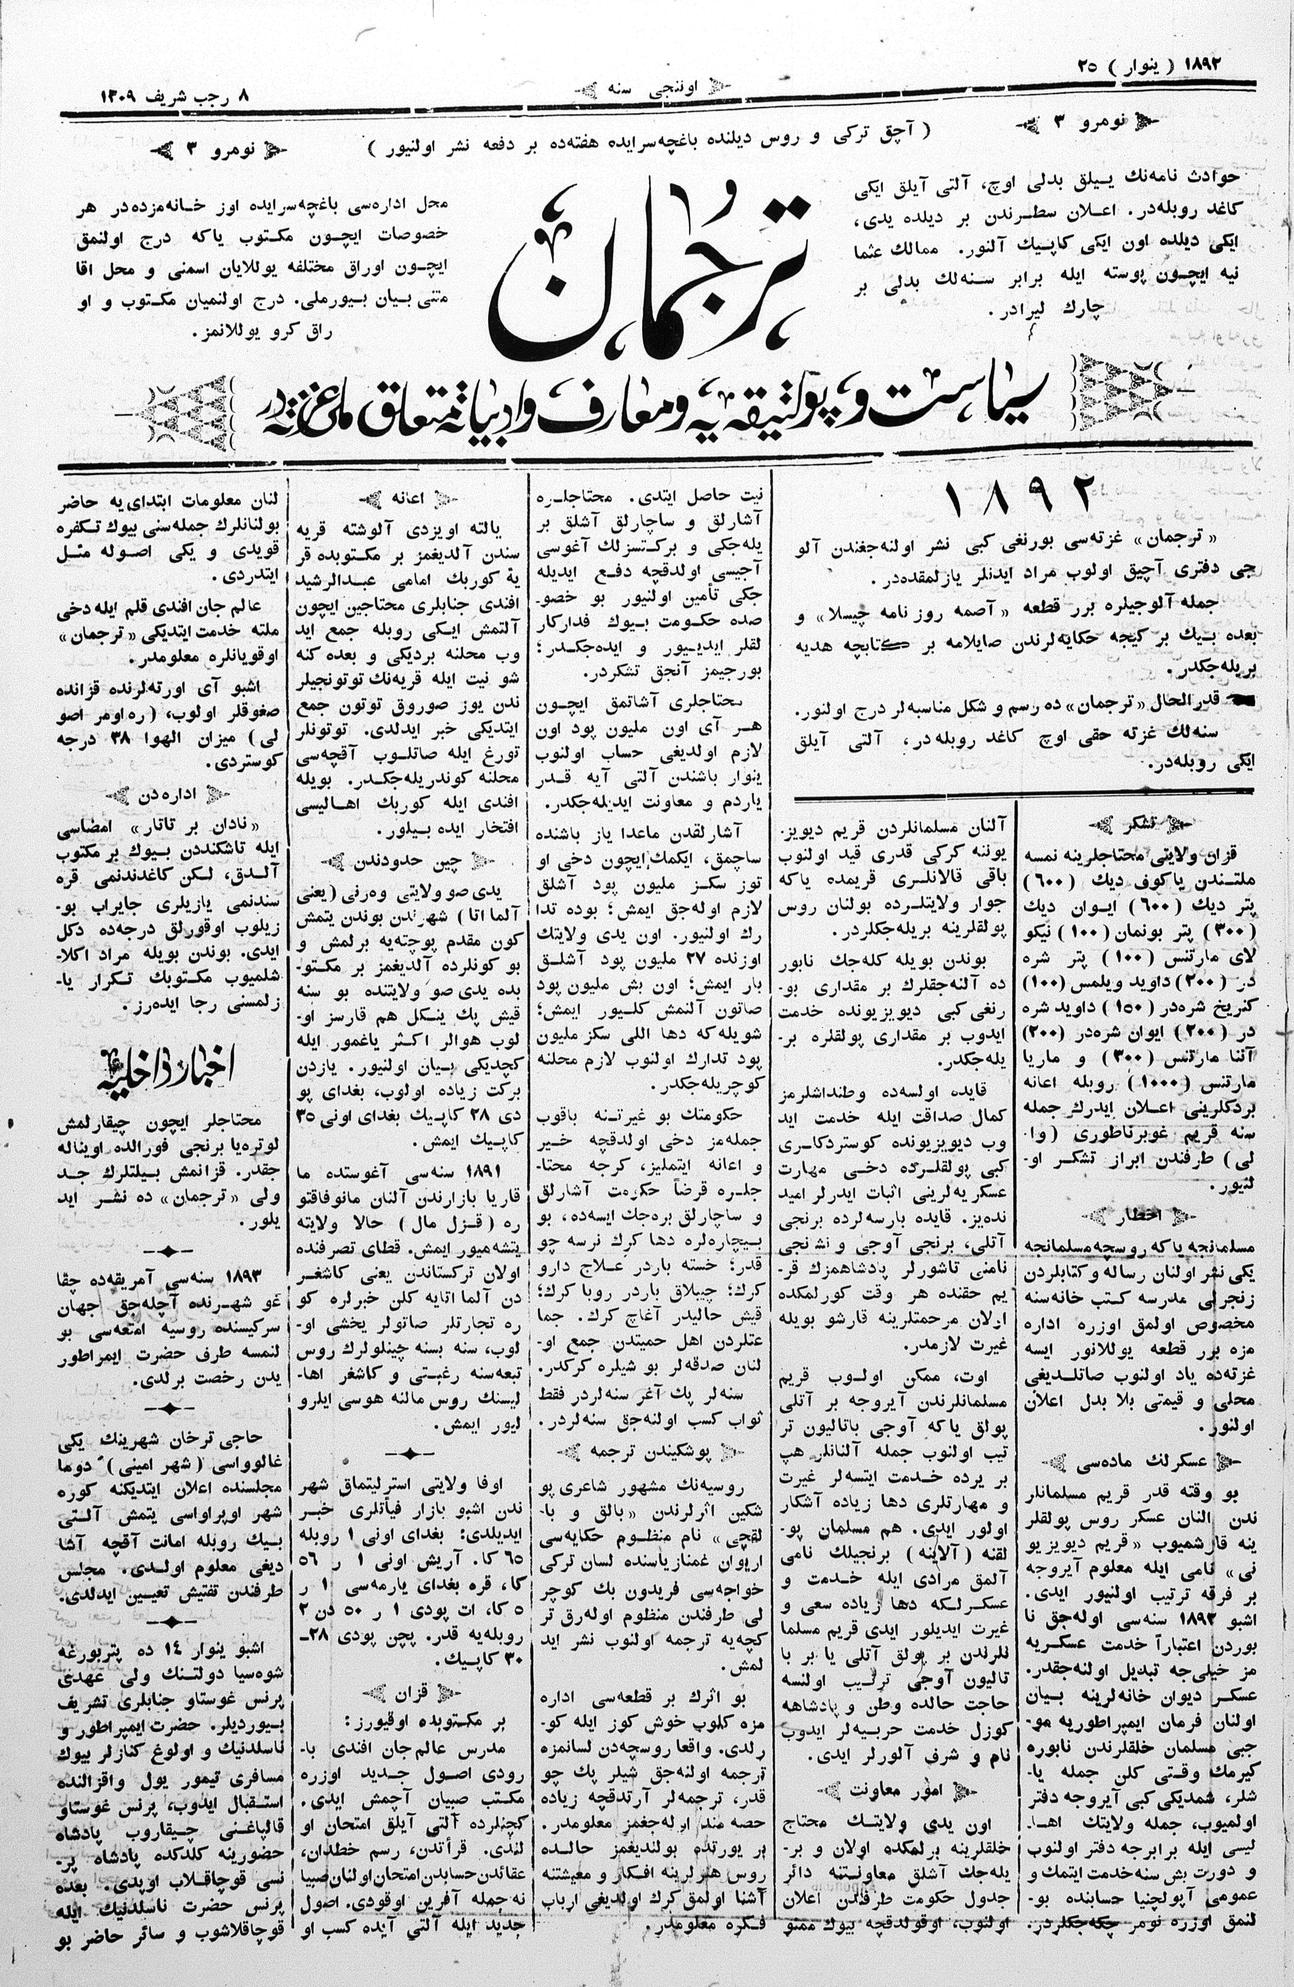 ١٨٩٢ ( ينوار ) ٢٥
اوننجى سنه
٨ رجب شريف ١٣٠٩
نومرو ٣
( آچق تركى و روس ديلنده باغچه‌سرايده هفته‌ده بر دفعه نشر اولنيور )
نومرو ٣
حوادث نامه‌نك ييلق بدلى اوچ، آلتى آيلق ايكى
كاغد روبله‌در. اعلان سطرندن بر ديلده يدى،
ايكى ديلده اون ايكى كاپيك آلنور. ممالك عثما
نيه ايچون پوسته ايله برابر سنه‌لك بدلى بر
چارك ليرادر.
ترجمان
محل اداره‌سى باغچه‌سرايده اوز خانه‌مزده‌در هر
خصوصات ايچون مكتوب ياكه درج اولنمق
ايچون اوراق مختلفه يوللايان اسمنى و محل اقا
متنى بيان بيورملى. درج اولنميان مكتوب و او
راق كرو يوللانمز.
سياست و پولتيقه‌يه و معارف و ادبياته متعلق ملى غزته‌در
١٨٩٢
«ترجمان» غزته‌سى بورنغى كبى نشر اولنه‌جغندن آلو
جى دفترى آچيق اولوب مراد ايدنلر يازلمقده‌در.
جمله آلوجيلره برر قطعه «آصمه روزنامه چيسلا» و
بعده بيك بر كيجه حكايه‌لرندن صايلامه بر كتابچه هديه
بريله‌جكدر.
قدر الحال «ترجمان» ده رسم و شكل مناسبه‌لر درج اولنور.
سنه‌لك غزته حقى اوچ كاغد روبله‌در، آلتى آيلق
ايكى روبله‌در.
تشكر
قزان ولايتى محتاجلرينه نمسه
ملتندن ياكوف ديك (٦٠٠)
پتر ديك (٦٠٠) ايوان ديك
(٣٠٠) پتر بونمان (١٠٠) نيكو
لاى مارتنس (١٠٠) پتر شره
در (٢٠٠) داويد ويلمس (١٠٠)
كنريخ شره‌در (١٥٠) داويد شره
در (٢٠٠) ايوان شره‌در (٢٠٠)
آننا مارتنس (٣٠٠) و ماريا
مارتنس (١٠٠٠) روبله اعانه
بردكلرينى اعلان ايدرك جمله
سنه قريم غوبرناطورى (وا-
لى) طرفندن ابراز تشكر او-
لنيور.
اخطار
مسلمانجه ياكه روسچه مسلمانجه
يكى نشر اولنان رساله و كتابلردن
زنجرلى مدرسه كتب خانه‌سنه
مخصوص اولمق اوزره اداره
مزه برر قطعه يوللانور ايسه
غزته‌ده ياد اولنوب صاتلديغى
محلى و قيمتى بلا بدل اعلان
اولنور.
عسكرلك ماده‌سى
بو وقته قدر قريم مسلمانلر
ندن النان عسكر روس پولقلر
ينه قارشميوب «قريم ديويزيو
نى» نامى ايله معلوم آيروجه
بر فرقه ترتيب اولنيور ايدى.
اشبو ١٨٩٢ سنه‌سى اوله‌جق نا
بوردن اعتباراً خدمت عسكريه
مز خيلى‌جه تبديل اولنه‌جقدر.
عسكر ديوان خانه‌لرينه بيان
اولنان فرمان ايمپراطوريه مو-
جبى مسلمان خلقلرندن نابوره
كيرمك وقتى كلن جمله يا-
شلر، شمديكى كبى آيروجه دفتر
اولميوب، جمله ولايتك اها-
ليسى ايله برابرجه دفتر اولنوب
و دورت بش سنه خدمت ايتمك و
عمومى آپولچنيا حسابنده بو-
لنمق اوزره نومر چكه‌جكلردر.
آلنان مسلمانلردن قريم ديويز-
يوننه كركى قدرى قيد اولنوب
باقى قالانلرى قريمده ياكه
جوار ولايتلرده بولنان روس
پولقلرينه بريله‌جكلردر.
بوندن بويله كله‌جك نابور
ده آلنه‌جقلرك بر مقدارى بو-
رنغى كبى ديويزيونده خدمت
ايدوب بر مقدارى پولقلره بر-
يله‌جكدر.
قايده اولسه‌ده وطنداشلرمز
كمال صداقت ايله خدمت ايد
وب ديويزيونده كوستردكلرى
كبى پولقلرده دخى مهارت
عسكريه‌لرينى اثبات ايدرلر اميد
نده‌يز. قايده بارسه‌لرده برنجى
آتلى، برنجى آوجى و نشنجى
نامنى تاشورلر پادشاهمزك قر-
يم حقنده هر وقت كورلمكده
اولان مرحمتلرينه قارشو بويله
غيرت لازمدر.
اوت، ممكن اولوب قريم
مسلمانلرندن آيروجه بر آتلى
پولق ياكه آوجى باتاليون تر
تيب اولنوب جمله آلنانلر هپ
بر يرده خدمت ايتسه‌لر غيرت
و مهارتلرى دها زياده آشكار
اولور ايدى. هم مسلمان پو-
لقنه (آلاينه) برنجيلك نامى
آلمق مرادى ايله خدمت و
عسكرلكه دها زياده سعى و
غيرت ايديلور ايدى قريم مسلما
نلرندن بر پولق آتلى يا بر با
تاليون آوجى ترتيب اولنسه
حاجت حالده وطن و پادشاهه
كوزل خدمت حربيه‌لر ايدوب
نام و شرف آلورلر ايدى.
امور معاونت
اون يدى ولايتك محتاج
خلقلرينه برلمكده اولان و بر-
يله‌جك آشلق معاونتنه دائر
جدول حكومت طرفندن اعلان
اولنوب، اوقولدقچه بيوك ممنو
نيت حاصل ايتدى. محتاجلره
آشارلق و ساچارلق آشلق بر
يله‌جكى و بركتسزلك آغوسى
آجيسى اولدقچه دفع ايديله
جكى تأمين اولنيور بو خصو-
صده حكومت بيوك فداركار
لقلر ايديور و ايده‌جكدر؛
بورجيمز آنجق تشكردر.
محتاجلرى آشاتمق ايچون
هر آى اون مليون پود اون
لازم اولديغى حساب اولنوب
ينوار باشندن آلتى آيه قدر
ياردم و معاونت ايديله‌جكدر.
آشارلقدن ماعدا ياز باشنده
ساچمق، ايكمك ايچون دخى او
توز سكز مليون پود آشلق
لازم اوله‌جق ايمش؛ بوده تدا
رك اولنيور. اون يدى ولايتك
اوزنده ٢٧ مليون پود آشلق
بار ايمش؛ اون بش مليون پود
صاتون آلنمش كليور ايمش؛
شويله‌كه دها اللى سكز مليون
پود تدارك اولنوب لازم محلنه
كوچريله‌جكدر.
حكومتك بو غيرتنه باقوب
جمله‌مز دخى اولدقچه خير
و اعانه ايتمليز، كرچه محتا-
جلره قرضاً حكومت آشارلق
و ساچارلق بره‌جك ايسه‌ده، بو
بيچاره‌لره دها كرك نرسه چو
قدر؛ خسته باردر علاج دارو
كرك؛ چيپلاق باردر روبا كرك؛
قيش حاليدر آغاچ كرك. جما
عتلردن اهل حميتدن جمع او-
لنان صدقه‌لر بو شيلره كركدر.
سنه‌لر پك آغر سنه‌لردر فقط
ثواب كسب اولنه‌جق سنه‌لردر.
پوشكيندن ترجمه
روسيه‌نك مشهور شاعرى پو
شكين اثرلرندن «بالق و با-
لقچى» نام منظوم حكايه‌سى
اريوان غمنازياسنده لسان تركى
خواجه‌سى فريدون بك كوچر
لى طرفندن منظوم اوله‌رق تر
كچه‌يه ترجمه اولنوب نشر ايد
لمش.
بو اثرك بر قطعه‌سى اداره
مزه كلوب خوش كوز ايله كو-
رلدى. واقعا روسچه‌دن لسانمزه
ترجمه اولنه‌جق شيلر پك چو
قدر، ترجمه‌لر آرتدقچه زياده
حصه‌مند اوله‌جغمز معلومدر.
بر يورتده بولنديغمز حالده
روس هنرلرينه افكار و معيشتنه
آشنا اولمق كرك اولديغى ارباب
فكره معلومدر.
اعانه
يالته اويزدى آلوشته قريه
سندن آلديغمز بر مكتوبده قر
يۀ كوربك امامى عبدالرشيد
افندى جنابلرى محتاجين ايچون
آلتمش ايكى روبله جمع ايد
وب محلنه برديكى و بعده كنه
شو نيت ايله قريه‌نك توتونجيلر
ندن يوز صوروق توتون جمع
ايتديكى خبر ايدلدى. توتونلر
تورغ ايله صاتلوب آقچه‌سى
محلنه كوندريله‌جكدر. بويله
افندى ايله كوربك اهاليسى
افتخار ايده بيلور.
چين حدودندن
يدى صو ولايتى وه‌رنى (يعنى
آلما اتا) شهرندن بوندن يتمش
كون مقدم پوچته‌يه برلمش و
بو كونلرده آلديغمز بر مكتو-
بده يدى صو ولايتنده بو سنه
قيش پك ينكل هم قارسز او-
لوب هوالر اكثر ياغمور ايله
كچديكى بيان اولنيور. يازدن
بركت زياده اولوب، بغداى پو
دى ٢٨ كاپيك بغداى اونى ٣٥
كاپيك ايمش.
١٨٩١ سنه‌سى آغوستده ما
قاريا بازارندن آلنان مانوفاقتو
ره (قزل مال) حالا ولايته
يتشه‌ميور ايمش. قطاى تصرفنده
اولان تركستاندن يعنى كاشغر
دن آلما اتايه كلن خبرلره كو
ره تجارتلر صاتولر يخشى او-
لوب، سنه بسنه چينلولرك روس
تبعه‌سنه رغبتى و كاشغر اها-
ليسنك روس مالنه هوسى ايلرو
ليور ايمش.
اوفا ولايتى استرليتماق شهر
ندن اشبو بازار فيأتلرى خبر
ايديلدى: بغداى اونى ١ روبله
٦٥ كا. آريش اونى ١ ر ٥٦
كا، قره بغداى يارمه‌سى ١ ر
٥ كا، ات پودى ١ ر ٥٠ دن ٢
روبله‌يه قدر. پچن پودى ٢٨-
٣٠ كاپيك.
قزان
بر مكتوبده اوقيورز:
مدرس عالم‌جان افندى با-
رودى اصول جديد اوزره
مكتب صبيان آچمش ايدى.
كچنلرده آلتى آيلق امتحان او
لندى. قرأتدن، رسم خطدان،
عقائدن حسابدن امتحان اولنان صبيا
نه جمله آفرين اوقودى. اصول
جديد ايله آلتى آيده كسب او
لنان معلومات ابتداى يه حاضر
بولنانلرك جمله‌سنى بيوك تكفره
قويدى و يكى اصوله مثل
ايتدردى.
عالم جان افندى قلم ايله دخى
ملته خدمت ايتديكى «ترجمان»
اوقويانلره معلومدر.
اشبو آى اورته‌لرنده قزانده
صغوقلر اولوب، (ره‌اومر اصو
لى) ميزان الهوا ٣٨ درجه
كوستردى.
اداره‌دن
«نادان بر تاتار» امضاسى
ايله تاشكنددن بيوك بر مكتوب
آلدق، لكن كاغدندنمى قره
سندنمى يازيلرى جايراب بو-
زيلوب اوقورلق درجه‌ده دكل
ايدى. بوندن بويله مراد اكلا-
شلميوب مكتوبك تكرار يا-
زلمسنى رجا ايده‌رز.
اخبار داخليه
محتاجلر ايچون چيقارلمش
لوتره‌يا برنجى فورالده اوينانه
جقدر. قزانمش بيلتلرك جد
ولى «ترجمان» ده نشر ايد
يلور.
١٨٩٣ سنه‌سى آمريقه‌ده چقا
غو شهرنده آچله‌جق جهان
سركيسنده روسيه امتعه‌سى بو
لنمسه طرف حضرت ايمپراطور
يدن رخصت برلدى.
حاجى ترخان شهرينك يكى
غالوواسى (شهر امينى) دوما
مجلسنده اعلان ايتديكنه كوره
شهر اوپراواسى يتمش آلتى
بيك روبله امانت آقچه آشا
ديغى معلوم اولدى. مجلس
طرفندن تفتيش تعيين ايدلدى.
اشبو ينوار ١٤ ده پتربورغه
شوه‌سيا دولتنك ولى عهدى
پرنس غوستاو جنابلرى تشريف
بيورديلر. حضرت ايمپراطور و
ناسلدنيك و اولوغ كنازلر بيوك
مسافرى تيمور يول واقزالنده
استقبال ايدوب، پرنس غوستاو
قالپاغنى چيقاروب پادشاه
حضورينه كلدكده پادشاه پر-
نسى قوچاقلاب اوپدى. بعده
پرنس حضرت ناسلدنيك ايله
قوچاقلاشوب و سائر حاضر بو